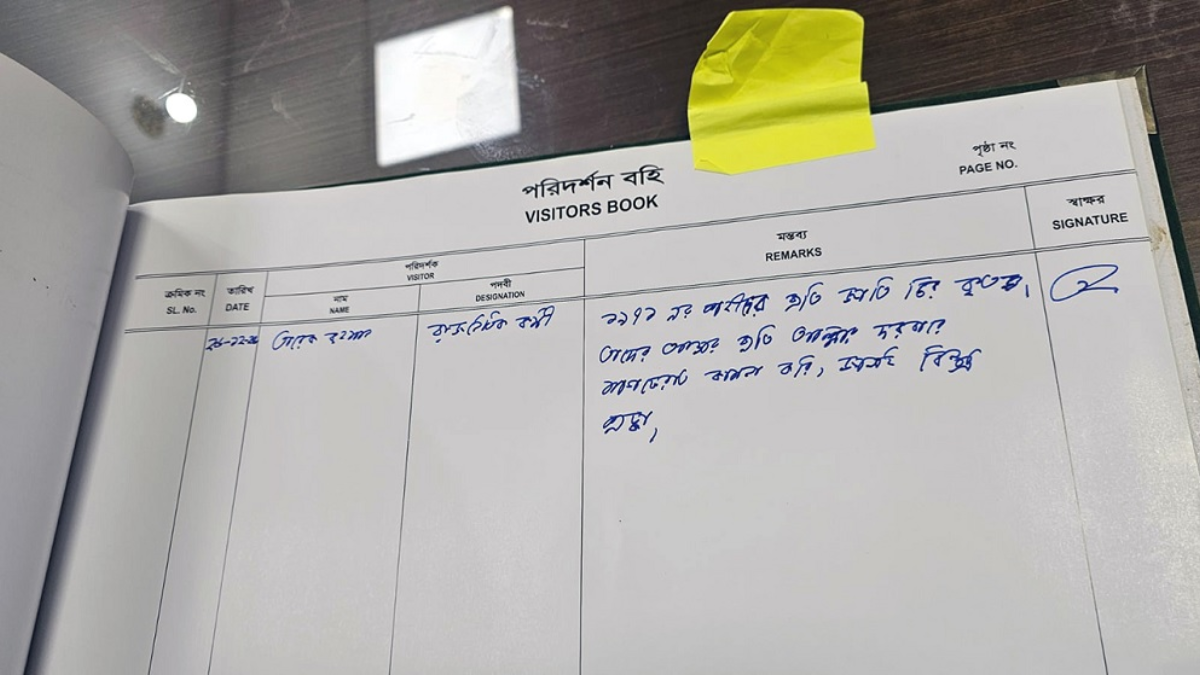 পরিদর্শন বহি
VISITORS BOOK
পৃষ্ঠা নং
PAGE NO.
ক্রমিক নং
SL. No.
তারিখ
DATE
পরিদর্শক
VISITOR
নাম
NAME
পদবী
DESIGNATION
মন্তব্য
REMARKS
স্বাক্ষর
SIGNATURE
তারেক রহমান
রাজনৈতিক কর্মী
১৯৭১ এর শহীদদের প্রতি জাতি চির কৃতজ্ঞ,
তাদের আত্মার প্রতি আল্লাহর দরবারে
মাগফেরাত কামনা করি, জানাই বিনম্র
শ্রদ্ধা,